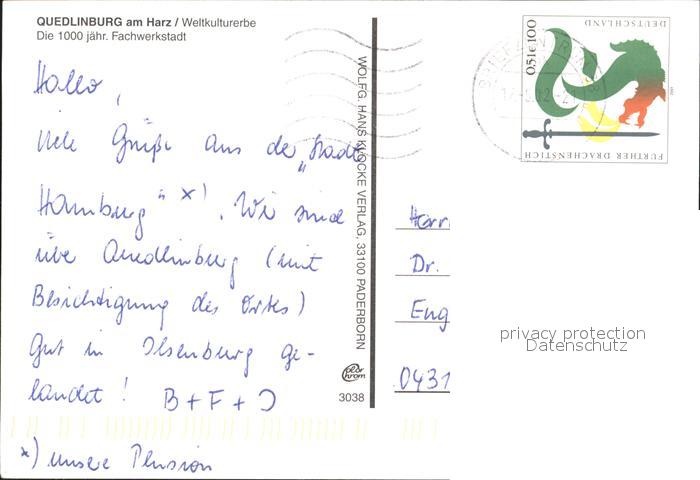 QUEDLINBURG am Harz / Weltkulturerbe
Die 1000 jähr. Fachwerkstadt
Hallo,
viele Grüße aus der „Stadt
Hamburg" x). Wir sind
über Quedlinburg (mit
Besichtigung des Ortes)
gut in Ilsenburg ge-
landet! B + F + J
x) unsere Pension
WOLFG. HANS KLOCKE VERLAG, 33100 PADERBORN
colorchrom
3038
DEUTSCHLAND
0,51 € 100
FURTHER DRACHENSTICH
Herr
Dr.
Eng
0431
privacy protection
Datenschutz